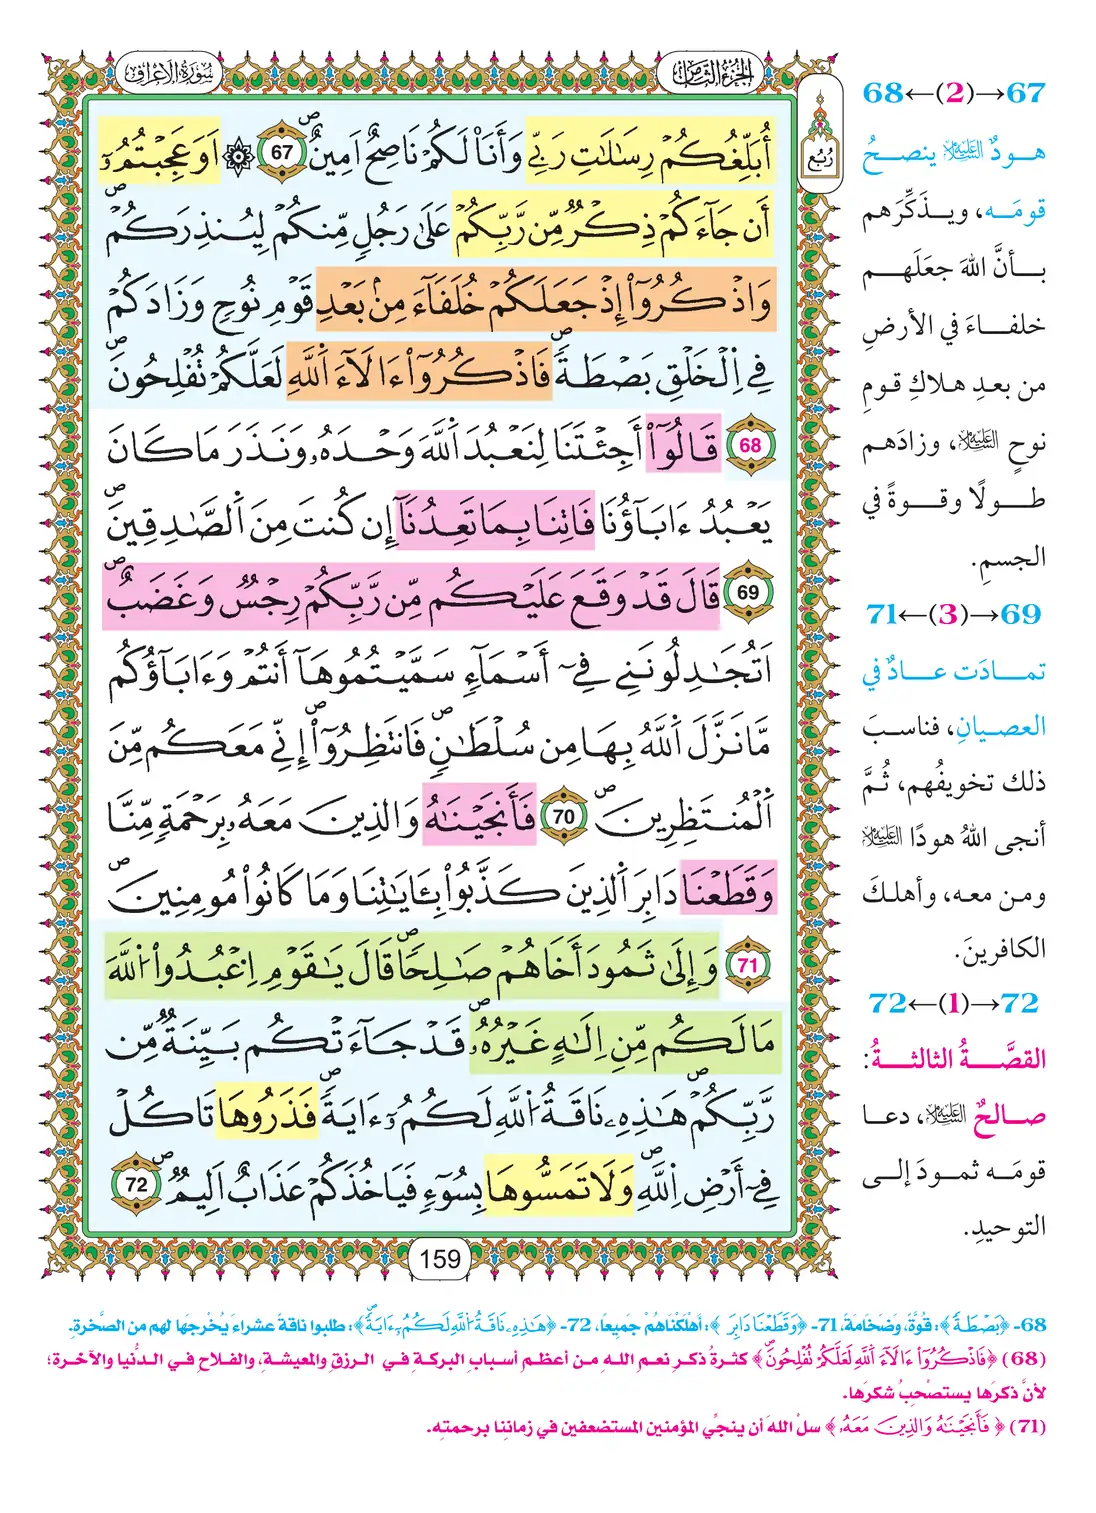 سُورَةُ الْأَعْرَافِ
الجُزْءُ الثَّامِنُ
رُبُع
أُبَلِّغُكُمْ رِسَٰلَٰتِ رَبِّي وَأَنَا۠ لَكُمْ نَاصِحٌ اَمِينٌ 67 ۞ اَوَعَجِبْتُمُۥٓ
أَن جَآءَكُمْ ذِكْرٌ مِّن رَّبِّكُمْ عَلَىٰ رَجُلٍ مِّنكُمْ لِيُنذِرَكُمْ
وَاذْكُرُوٓاْ إِذْ جَعَلَكُمْ خُلَفَآءَ مِنۢ بَعْدِ قَوْمِ نُوحٍ وَزَادَكُمْ
فِي اِلْخَلْقِ بَصْۜطَةً فَاذْكُرُوٓاْ ءَالَآءَ اَللَّهِ لَعَلَّكُمْ تُفْلِحُونَ
68 قَالُوٓاْ أَجِئْتَنَا لِنَعْبُدَ اَللَّهَ وَحْدَهُۥ وَنَذَرَ مَا كَانَ
يَعْبُدُ ءَابَآؤُنَا فَاتِنَا بِمَا تَعِدُنَآ إِن كُنتَ مِنَ اَلصَّٰدِقِينَ
69 قَالَ قَدْ وَقَعَ عَلَيْكُم مِّن رَّبِّكُمْ رِجْسٌ وَغَضَبٌ
اَتُجَٰدِلُونَنِي فِےٓ أَسْمَآءٍ سَمَّيْتُمُوهَآ أَنتُمْ وَءَابَآؤُكُم
مَّا نَزَّلَ اَللَّهُ بِهَا مِن سُلْطَٰنٍ فَانتَظِرُوٓاْ إِنِّي مَعَكُم مِّنَ
اَلْمُنتَظِرِينَ 70 فَأَنجَيْنَٰهُ وَالذِينَ مَعَهُۥ بِرَحْمَةٍ مِّنَّا
وَقَطَعْنَا دَابِرَ اَلذِينَ كَذَّبُواْ بِـَٔايَٰتِنَا وَمَا كَانُواْ مُومِنِينَ
71 وَإِلَىٰ ثَمُودَ أَخَاهُمْ صَٰلِحًا قَالَ يَٰقَوْمِ اِعْبُدُواْ اللَّهَ
مَا لَكُم مِّنِ اِلَٰهٍ غَيْرُهُۥ قَدْ جَآءَتْكُم بَيِّنَةٌ مِّن
رَّبِّكُمْ هَٰذِهِۦ نَاقَةُ اُللَّهِ لَكُمُۥٓ ءَايَةً فَذَرُوهَا تَاكُلْ
فِےٓ أَرْضِ اِللَّهِ وَلَا تَمَسُّوهَا بِسُوٓءٍ فَيَاخُذَكُمْ عَذَابٌ اَلِيمٌ 72
159
67→(2)←68
هودٌ عليه السلام ينصحُ
قومَه، ويذَكِّرَهم
بأنَّ اللهَ جعَلَهم
خلفاءَ في الأرضِ
من بعدِ هلاكِ قومِ
نوحٍ عليه السلام، وزادَهم
طولًا وقوةً في
الجسمِ.
69→(3)←71
تمادَت عادٌ في
العصيانِ، فناسبَ
ذلك تخويفُهم، ثُمَّ
أنجى اللهُ هودًا عليه السلام
ومن معه، وأهلكَ
الكافرينَ.
72→(1)←72
القصَّةُ الثالثةُ:
صالحٌ عليه السلام، دعا
قومَه ثمودَ إلى
التوحيدِ.
68- ﴿بَصْۜطَةً﴾: قُوَّةً، وضَخَامَةً، 71- ﴿وَقَطَعْنَا دَابِرَ﴾: أَهْلَكْنَاهُمْ جَمِيعاً، 72- ﴿هَٰذِهِۦ نَاقَةُ اُللَّهِ لَكُمُۥٓ ءَايَةً﴾: طلبوا ناقةً عشراءَ يُخْرِجُها لهم من الصَّخرةِ.
(68) ﴿فَاذْكُرُوٓاْ ءَالَآءَ اَللَّهِ لَعَلَّكُمْ تُفْلِحُونَ﴾ كثرةُ ذكرِ نعمِ اللهِ من أعظمِ أسبابِ البركةِ في الرزقِ والمعيشةِ، والفلاحِ في الدُّنيا والآخرةِ؛
لأنَّ ذكرَها يستصْحِبُ شكرَها.
(71) ﴿فَأَنجَيْنَٰهُ وَالذِينَ مَعَهُۥ﴾ سلْ اللهَ أن ينجِّي المؤمنين المستضعفين في زماننا برحمتِه.